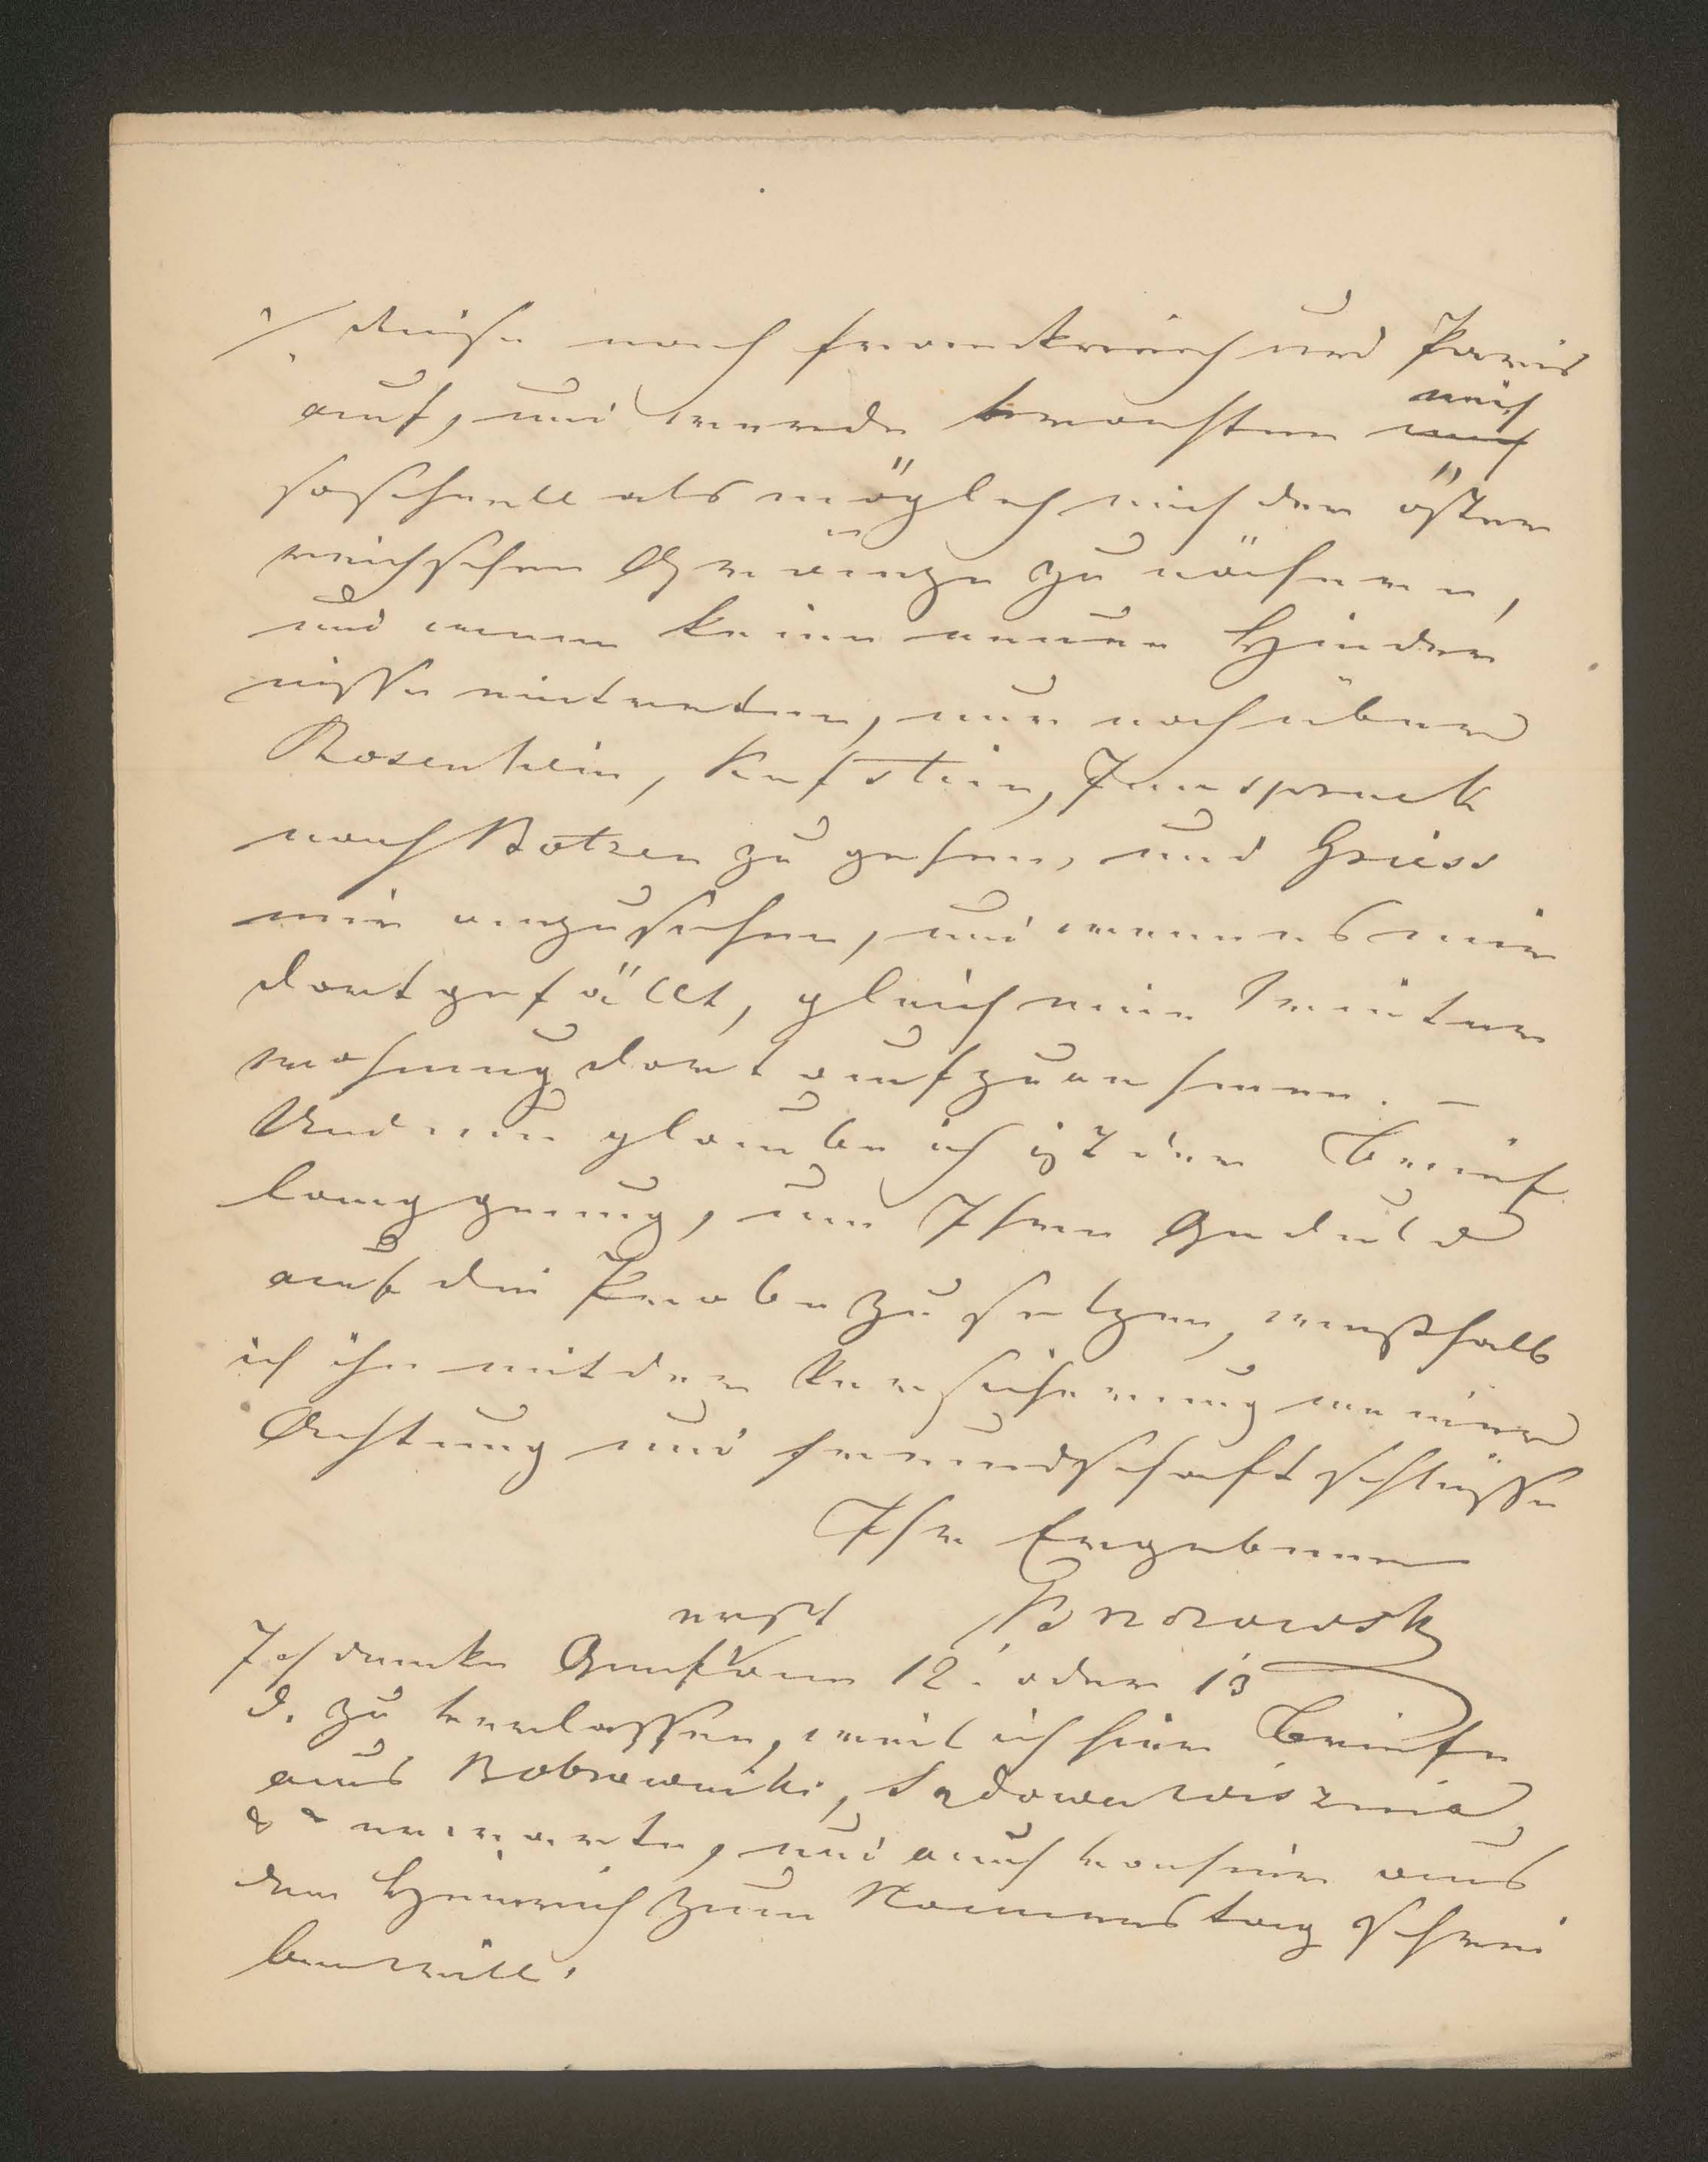 Reise nach Frankreich und Paris
auf, und werde trachten mich
so schnell als möglich mich der öster
reichschen Gränze zu nähern,
und wenn keine neuen Hinder
nisse eintreten, nur noch über
Rosenheim, Kufstein, Innspruck
nach Botzen zu gehen, und Griess
mir anzusehen, und wenn es mir
dort gefällt, gleich eine Winter
wohnung dort aufzunehmen. —
Und nun glaube ich ist der Brief
lang genug, um Ihre Geduld
auf die Probe zu setzen, weßhalb
ich ihn mit der Versicherung meiner
Achtung und Freundschaft schließe
Ihr Ergebener
erst
Ich denke Genf am 12. oder 13
d. zu verlassen, weil ich hier Briefe
aus Sądowa wisznia
& erwarte, und auch von hier aus
dem Heinrich zum Namenstag schrei
ben will.